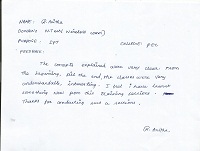 NAME: G. Anitha
PURPOSE:
PREPARE:
The concepts explained were very clear. From
the beginning till the end, the classes were very
understandable, interesting. I feel I have learnt
something new from this training sessions.
Thanks for conducting such a sessions.
G. Anitha